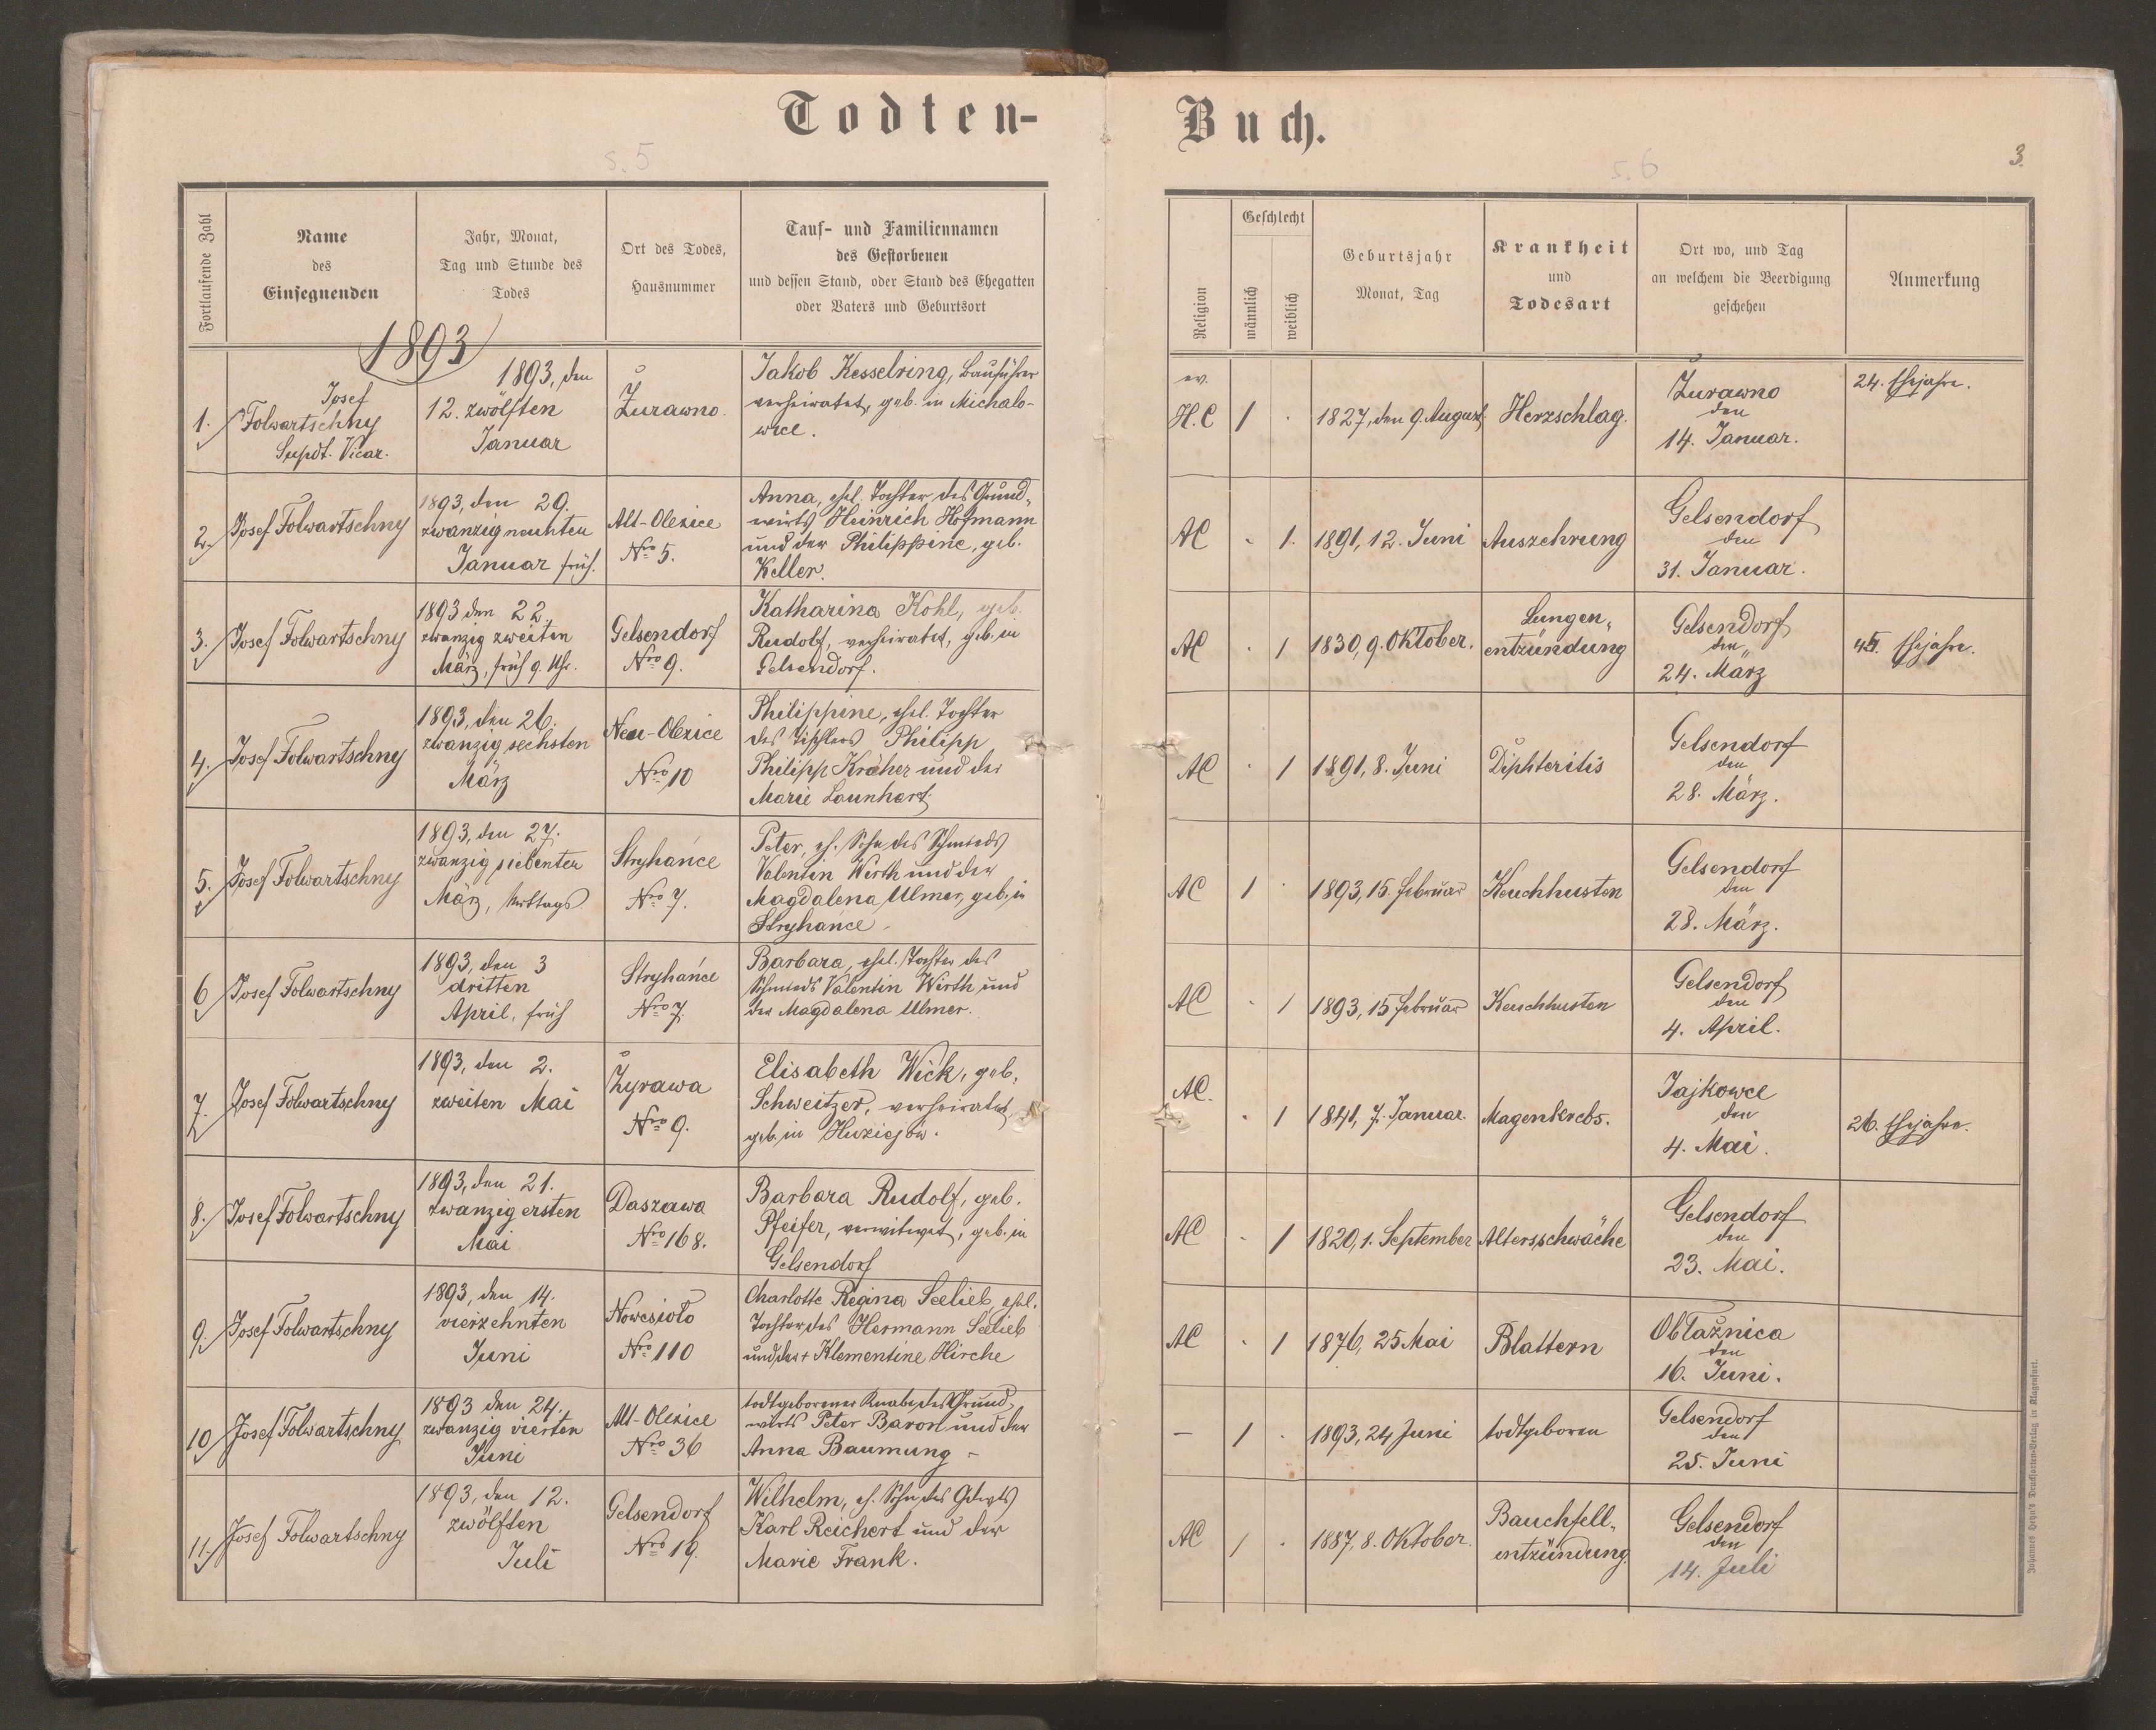 Todten-
Buch.
s. 5
s. 6
3.
Fortlaufende Zahl
Name
des
Einsegnenden
Jahr, Monat,
Tag und Stunde des
Todes
Ort des Todes,
Hausnummer
Tauf- und Familiennamen
des Gestorbenen
und dessen Stand, oder Stand des Ehegatten
oder Vaters und Geburtsort
Religion
Geschlecht
männlich
weiblich
Geburtsjahr
Monat, Tag
Krankheit
und
Todesart
Ort wo, und Tag
an welchem die Beerdigung
geschehen
Anmerkung
1893
1.
Josef
Folwartschny
Supdt. Vicar.
1893, den
12. zwölften
Januar
Żurawno.
Jakob Kesselring, Bauführer
verheiratet, geb. in Michalo-
wice.
ev.
H.C
1
1827, den 9. August
Herzschlag.
Żurawno
den
14. Januar.
24. Ehejahre.
2.
Josef Folwartschny
1893, den 29.
zwanzigneunten
Januar früh.
Alt-Olexice
Nro 5.
Anna, ehel. Tochter des Grund-
wirts Heinrich Hofmann
und der Philippine, geb.
Keller.
AC
1.
1891, 12. Juni
Auszehrung
Gelsendorf
den
31. Januar.
3.
Josef Folwartschny
1893 den 22.
zwanzig zweiten
März, früh 9 Uhr.
Gelsendorf
Nro 9.
Katharina Kohl, geb.
Rudolf, verheiratet, geb. in
Gelsendorf.
AC
1
1830, 9. Oktober.
Lungen-
entzündung
Gelsendorf
den
24. März
Ehejahre.
4.
Josef Folwartschny
1893, den 26.
zwanzig sechsten
März
Neu-Olexice
Nro 10
Philippine, ehel. Tochter
des Tischlers Philipp
Philipp Kräher und der
Marie Launhart
AC
1
1891, 8. Juni
Diphteritis
Gelsendorf
den
28. März.
5.
Josef Folwartschny
1893, den 27.
zwanzig siebenten
März, Mittags
Stryhańce
Nro 7.
Peter, eh. Sohn des Schmieds
Valentin Wirth und der
Magdalena Ulmer, geb. in
Stryhańce.
AC
1
1893, 15. Februar
Keuchhusten
Gelsendorf
den
28. März.
6
Josef Folwartschny
1893, den 3
dritten
April, früh
Stryhańce
Nro 7.
Barbara, ehel. Tochter des
Schmieds Valentin Wirth und
der Magdalena Ulmer.
AC
1
1893, 15 Februar
Keuchhusten
Gelsendorf
den
4. April.
7.
Josef Folwartschny
1893, den 2.
zweiten Mai
Żyrawa
Nro 9.
Elisabeth Wick, geb.
Schweitzer, verheiratet,
geb. in Huziejów.
AC.
1
1841, 7. Januar.
Magenkrebs.
Jajkowce
den
4. Mai.
26. Ehejahre.
8.
Josef Folwartschny
1893, den 21.
zwanzig ersten
Mai
Daszawa
Nro 168.
Barbara Rudolf, geb.
Pfeifer, verwitwet, geb. in
Gelsendorf
AC
1
1820, 1. September
Altersschwäche
Gelsendorf
den
23. Mai.
9.
Josef Folwartschny
1893, den 14.
vierzehnten
Juni
Nowesioło
Nro 110
Charlotte Regina Seelieb, ehel.
Tochter des Hermann Seelieb
und der + Klementine Hirche
AC
1
1876, 25 Mai
Blattern
Obłaźnica
den
16. Juni.
10
Josef Folwartschny
1893 den 24.
zwanzig vierten
Juni
Alt-Olexice
Nro 36
todtgeborener Knabe des Grund-
wirts Peter Baron und der
Anna Baumung -
-
1
1893, 24 Juni
todtgeboren
Gelsendorf
den
25. Juni
11.
Josef Folwartschny
1893, den 12.
zwölften
Juli
Gelsendorf
Nro 19.
Wilhelm, eh. Sohn des
Karl Reichert und der
Marie Frank.
AC
1
1887, 8. Oktober.
Bauchfell-
entzündung.
Gelsendorf
den
14. Juli
Johannes Heyn's Drucksorten-Verlag in Klagenfurt.